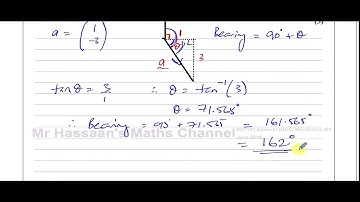 a = (1
-3)
1
θ
a
3
Bearing = 90° + θ
tan θ = 3/1 ∴ θ = tan⁻¹(3)
θ = 71.565°
∴ Bearing = 90° + 71.565° = 161.565°
= 162°
Mr Hassaan's Maths Channel